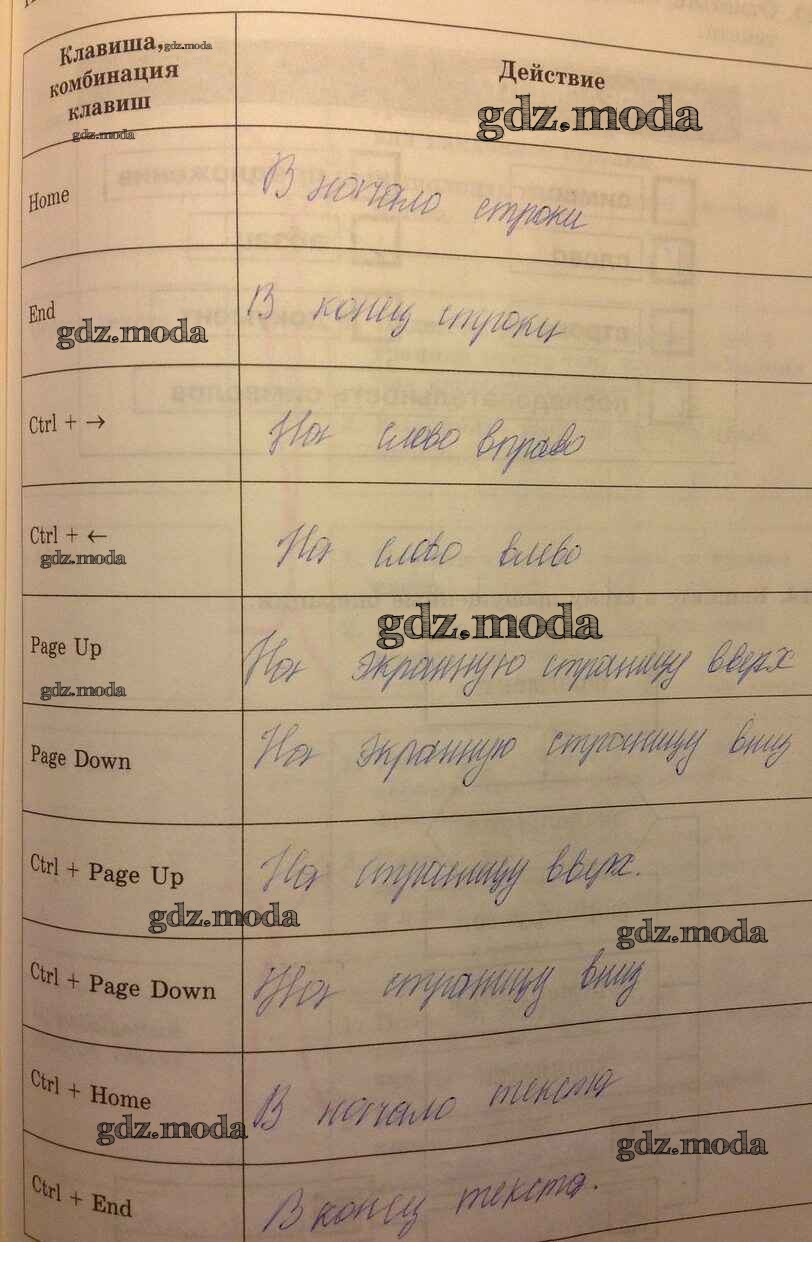 Клавиша, gdz.moda
комбинация
клавиш
gdz.moda
Действие
gdz.moda
Home
В начало строки
End
gdz.moda
В конец строки
Ctrl + →
На слово вправо
Ctrl + ←
gdz.moda
На слово влево
gdz.moda
Page Up
gdz.moda
На экранную страницу вверх
Page Down
На экранную страницу вниз
Ctrl + Page Up
На страницу вверх.
gdz.moda
gdz.moda
Ctrl + Page Down
На страницу вниз
Ctrl + Home
gdz.moda
В начало текста
gdz.moda
Ctrl + End
В конец текста.